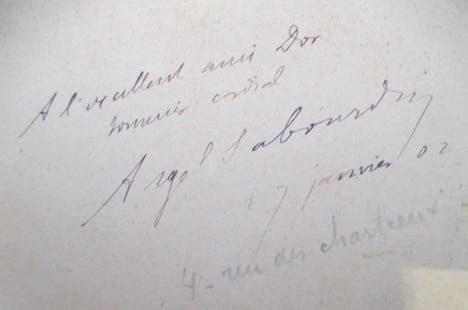 A l'excellent ami Dor
souvenir cordial
A Sabourdin
27 janvier 02
4 - rue des chartreux